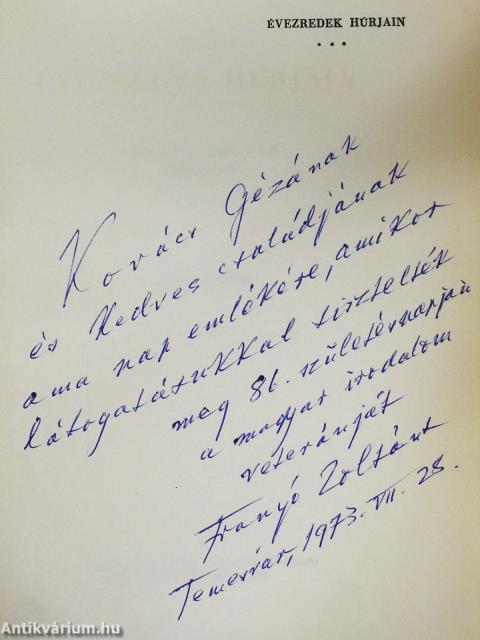 ÉVEZREDEK HÚRJAIN
* * *
Kovács Gézának
és kedves családjának
ama nap emlékére, amikor
látogatásukkal tisztelték
meg 86. születésnapján
a magyar irodalom
veteránját
Franyó Zoltánt
Temesvár, 1973. VII. 28.
Antikvárium.hu